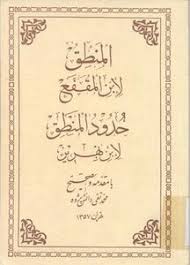 المنطق
لابن المقفع
حدود المنطق
لابن بهريز
با مقدمه و تصحیح
محمد تقی دانش پژوه
تهران ۱۳۵۷